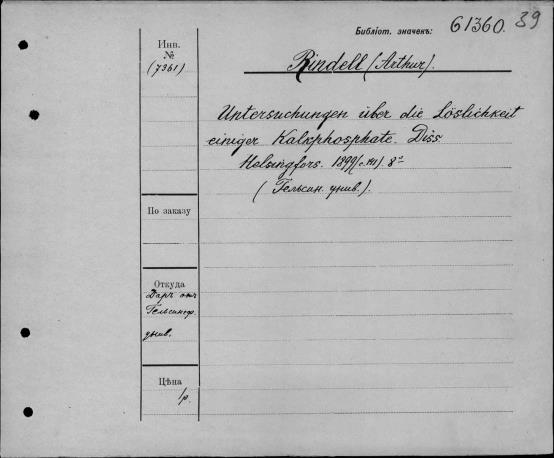 Библіот. значекъ: 61360. 39
Инв.
№
(7361)
Rindell (Arthur).
Untersuchungen über die Löslichkeit
einiger Kalkphosphate. Diss.
Helsingfors. 1899 8°
(Гельсин. унив.).
По заказу
Откуда
Даръ отъ
Гельсингф.
унив.
Цѣна
1р.